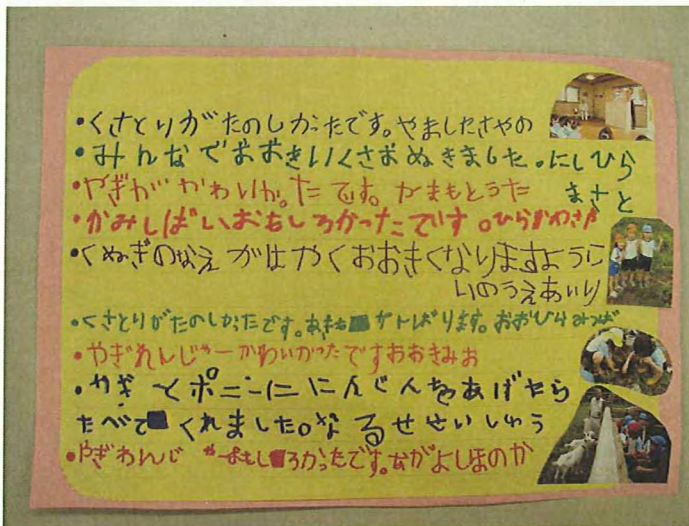 ・くさとりがたのしかったです。やましたさやの
・みんなでおおきいくさおぬきました。にしひら
まさと
・やぎがかわいかったです。かまもとうた
・かみしばいおもしろかったです。ひらかわさき
・くぬぎのなえがはやくおおきくなりますように
いのうえあいり
・くさとりがたのしかったです。がんばります。おおひらみつば
・やぎれんじゃーかわいかったですおおきみお
・やぎとポニーににんじんをあげたら
たべてくれました。なるせせいしゅう
・やぎれんじゃーおもしろかったです。ながよしほのか